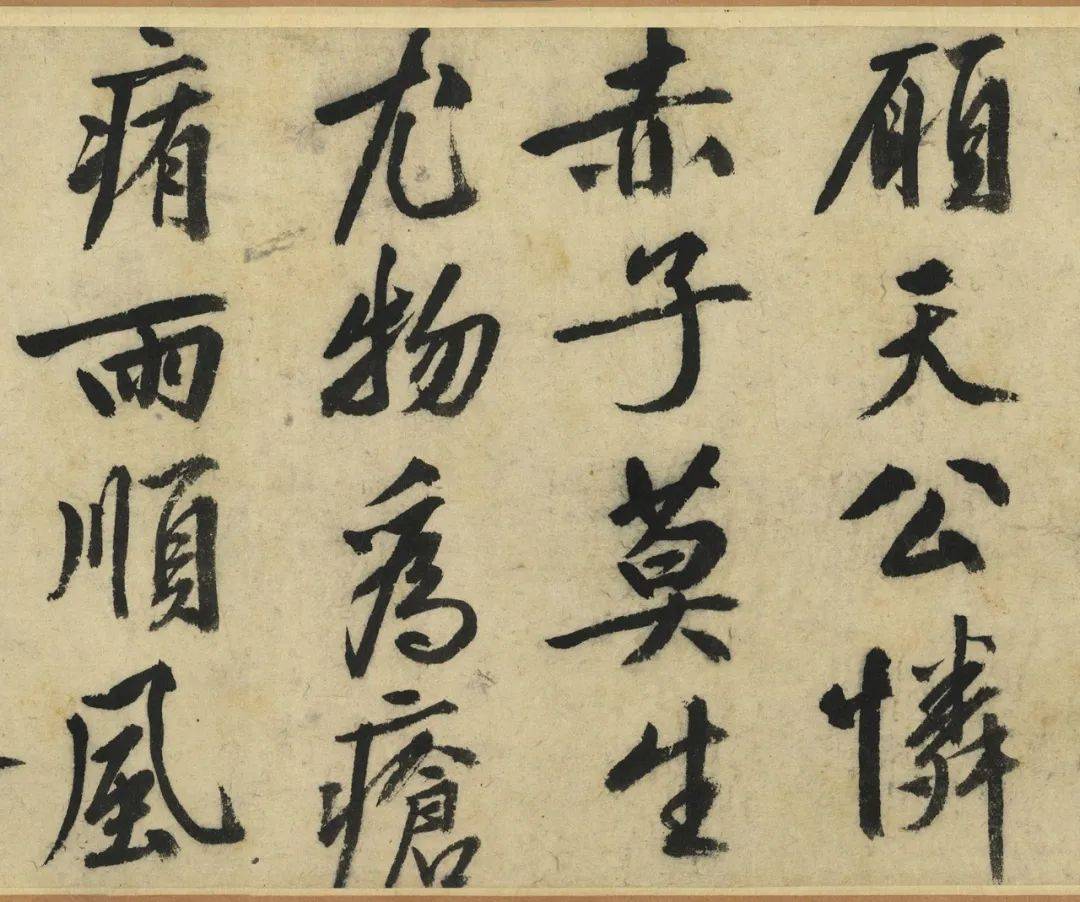 願天公憐
赤子莫生
尤物為瘡
痏雨順風